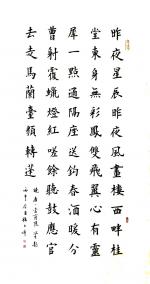 昨夜星辰昨夜風畫樓西畔桂
堂東身無彩鳳雙飛翼心有靈
犀一點通隔座送鈎春酒暖分
曹射覆蠟燈紅嗟餘聽鼓應官
去走馬蘭臺類轉蓬